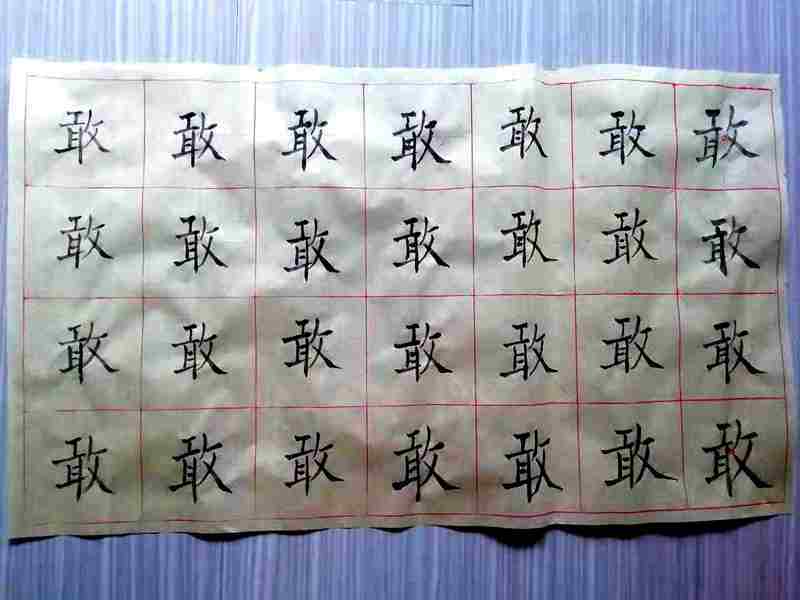 敢敢敢敢敢敢敢
敢敢敢敢敢敢敢
敢敢敢敢敢敢敢
敢敢敢敢敢敢敢